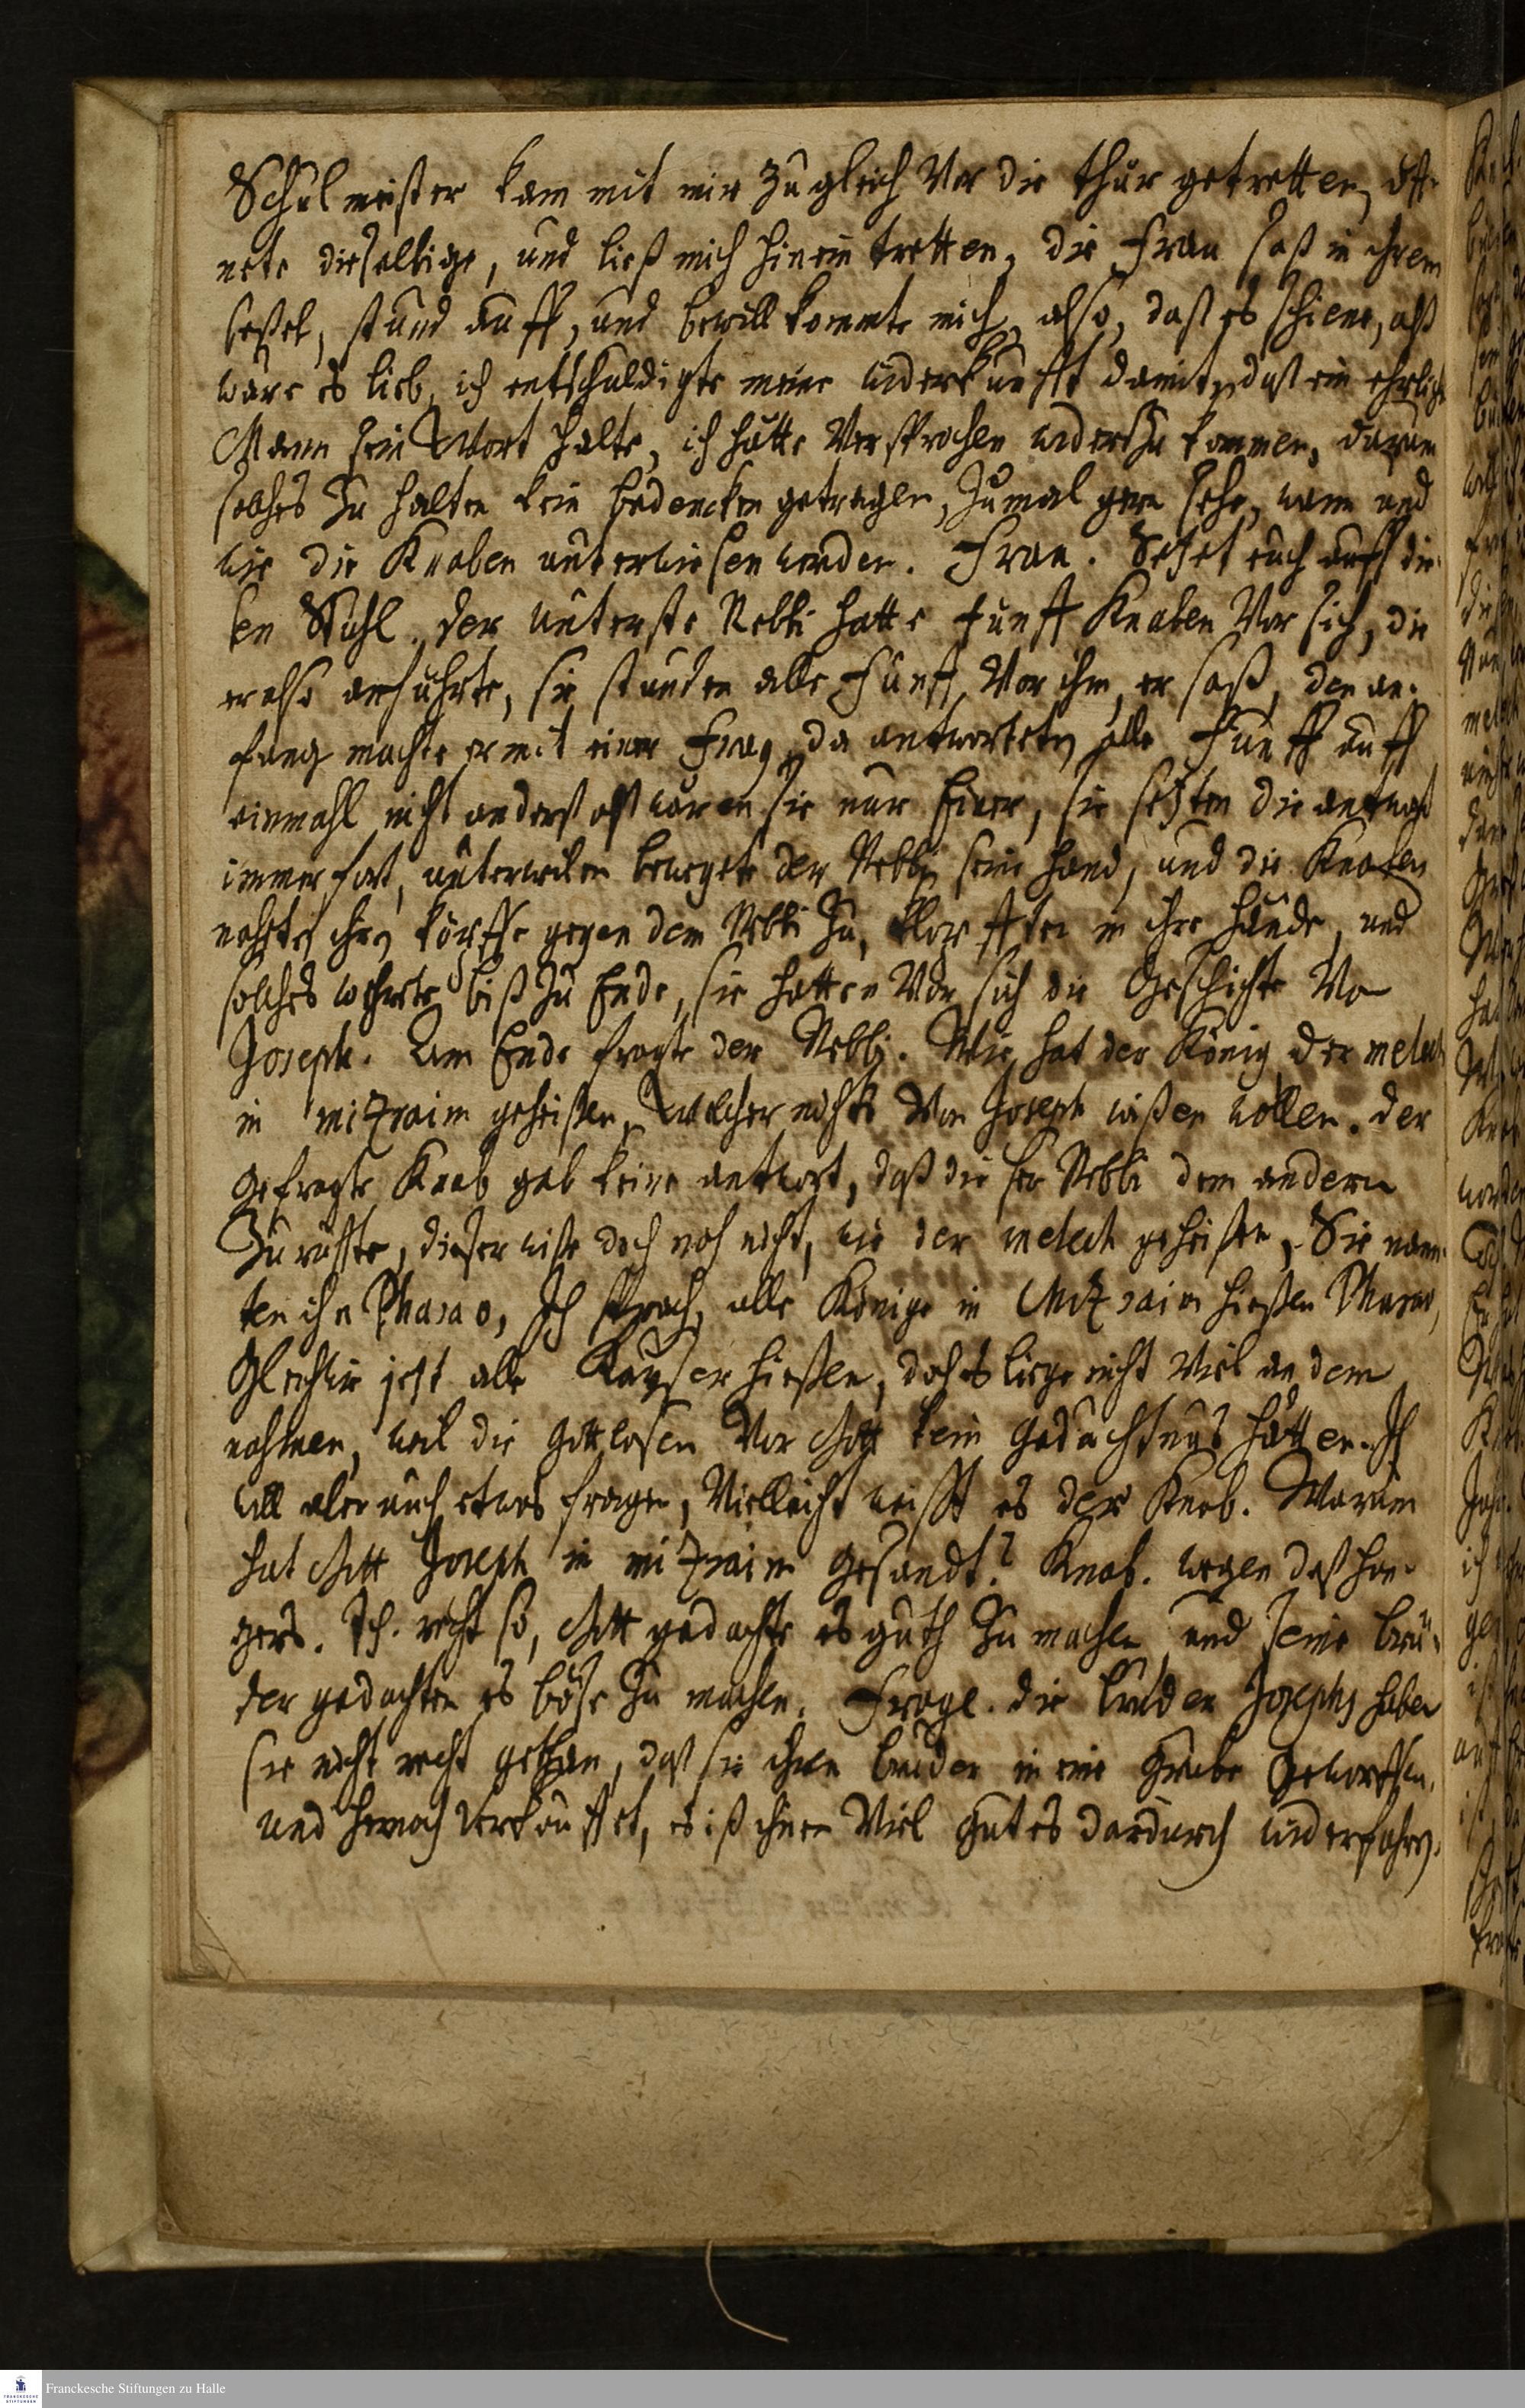 Schulmeister kam mit mir zugleich Vor die thür getretten, öff-
nete dieselbige, und ließ mich hinein tretten, die Frau saß in ihrem
seßel, stund auff, und bewillkommte mich, also, daß es schiene, alß
wäre es lieb, ich entschuldigte meine widerkunfft damit, daß ein ehrlicher
Mann sein Wort halte, ich hätte Versprochen widerzu kommen, darum
solches zu halten kein bedencken getragen, zumal gern sehe, wann und
wie die Knaben unterwiesen werden. Frau. Setzet euch auff die-
sen Stuhl. der unterste Rebbi hatte fünff Knaben Vor sich, die
er also anführte, sie stunden alle fünff Vor ihm, er saß, den an-
fang machte er mit einer Frag, da antworteten alle fünff auff
einmahl nicht anderst alß wären sie nur Einer, sie setzten die antwort
immer fort, unterweilen bewegte der Rebbi seine hand, und die Knaben
nahten ihre köpffe gegen dem Rebbi zu, klopfften in ihre hände, und
solches wehrete biß zu Ende, sie hatten Vor sich die Geschichte Von
Joseph. Am Ende fragte der Rebbi. Wie hat der König der melech
in mizraim geheißen, welcher nichts Von Joseph wißen wollen. der
gefragte Knab gab keine antwort, daß dieser Rebbi dem andern
zuruffte, dieser wiße doch noch nicht, wie der melech geheißen, Sie nann-
ten ihn Pharao, Ich sprach, alle Könige in Mizraim hießen Pharao,
Gleichwie jetzt alle Kayser hießen, doch es liege nicht Viel an dem
nahmen, weil die Gottlosen Vor Gott kein Gedächtnus hätten. Ich
will aber auch etwas fragen, Vielleicht weißt es der Knab. Warum
hat Gott Joseph in mizraim gesandt? Knab. wegen deß hun-
gers. Ich. recht so, Gott gedachte es guth zu machen und seine brü-
der gedachten es böse zu machen. Frage. die brüder Josephs haben
sie nicht recht gethan, daß sie ihren bruder in eine Grube geworffen,
und hernach Verkauffet, es ist ihnen Viel gutes dardurch widerfahren.
Franckesche Stiftungen zu Halle